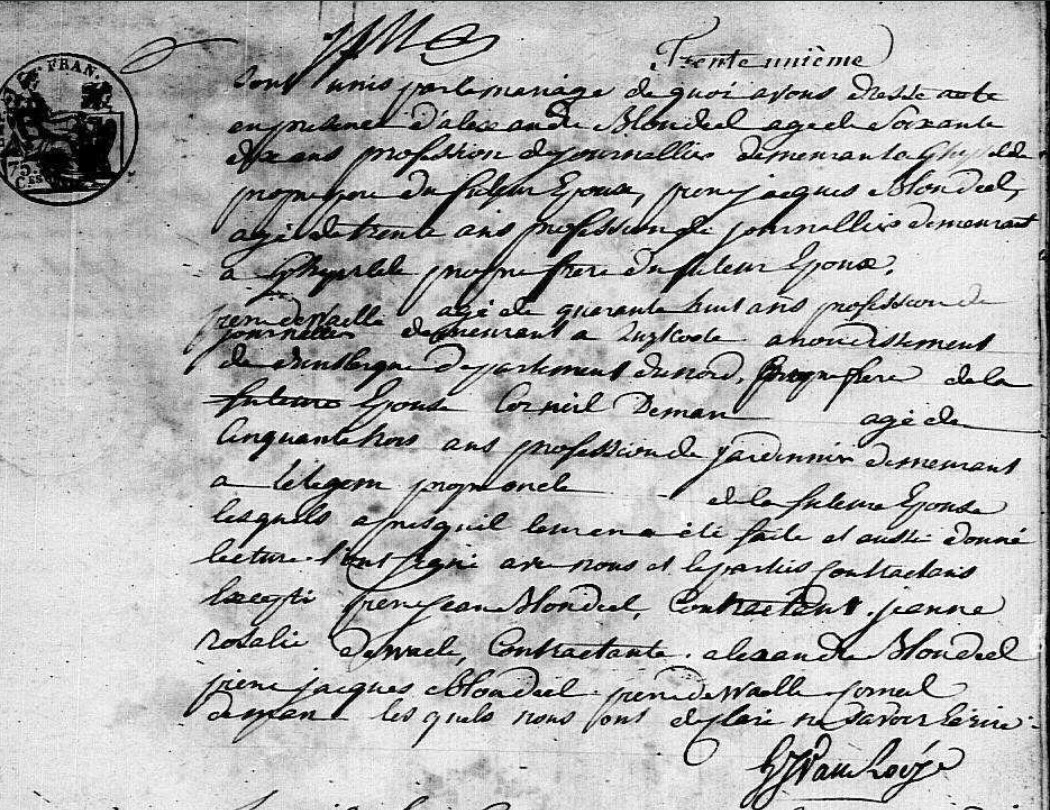 FRAN.
75
C.ES
Trente unième
sont unis par le mariage de quoi avons dressé acte
en presence d'alexandre Blondeel agé de soixante
dix ans profession de journallier demeurant a Ghyvelde
propre pere du futeur Epoux, piere jacques Blondeel,
agé de trente ans profession de journallier demeurant
a Ghyvelde propre frere du futeur Epoux,
piere deWaelle agé de quarante huit ans profession de
journallier demeurant a Zuytcoote arrondissement
de dunkerque departement du nord, propre frere de la
future Epouse Corneil Deman agé de
Cinquante trois ans profession de jardinnier demeurant
a propre oncle de la future Epouse
lesquels apres quil leur en a été faite et aussi donné
lecture l'ont signé avec nous et le parties Contractans
Excepté piere jean Blondeel, Contractant. jeanne
rosalie dewaele, Contractante. alexandre Blondeel
piere jacques Blondeel. piere deWaelle. Corneil
deman les quels nous ont declaré ne savoir Ecrire.